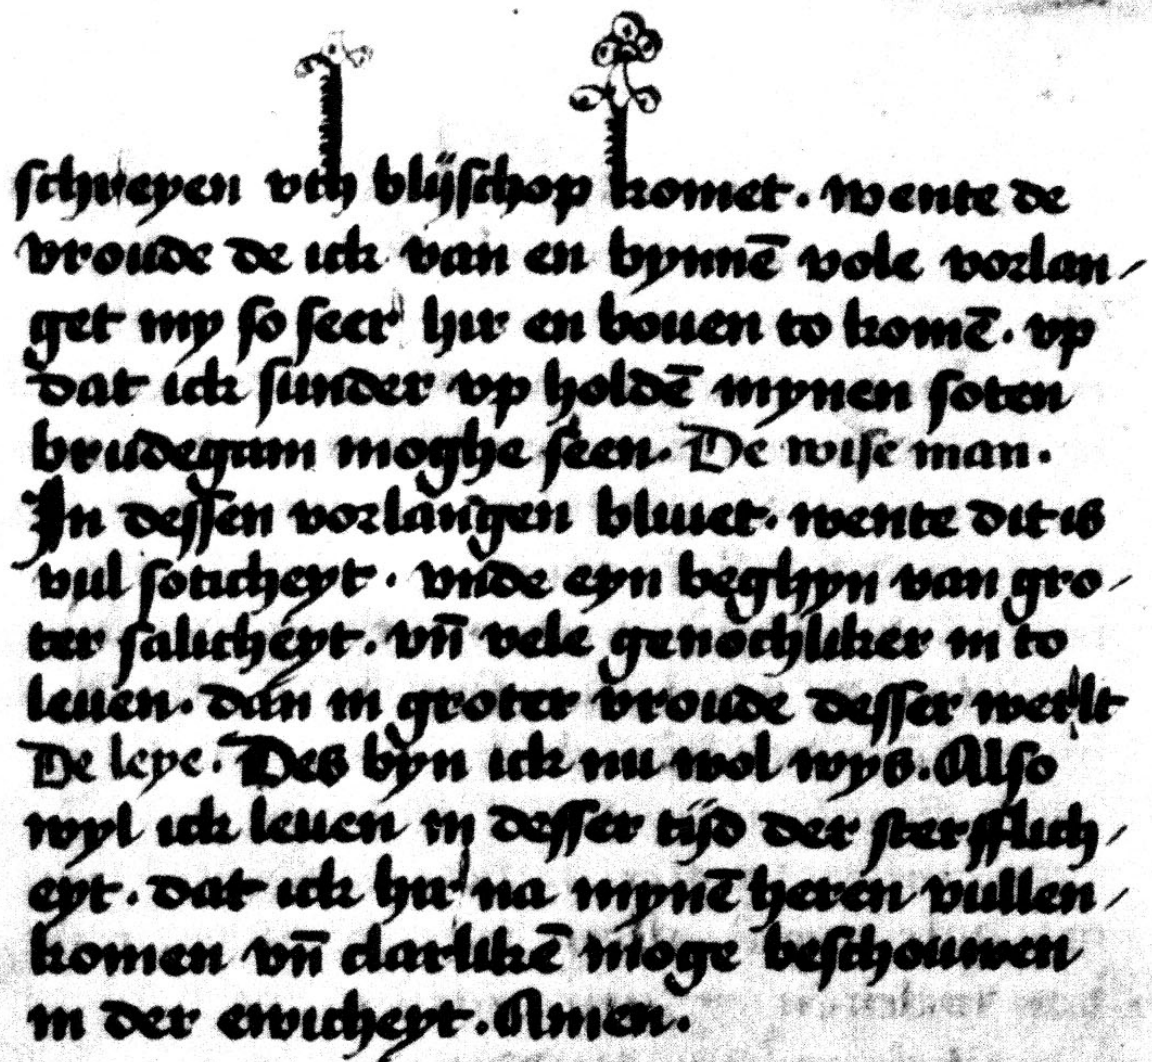 schreyen vth blijschop komet. wente de
vroude de ick van en bynnē vole vorlan/
get my so seer hir en bouen to komē. vp
dat ick sunder vp holdē mynen soten
brudegam moghe seen. De wise man.
In dessen vorlangen bliuet. wente dit is
vul soticheyt. vnde eyn beghyn van gro/
ter salicheyt. vn̄ vele genochliker in to
leuen. dan in groter vroude desser werlt
De leye. Des byn ick nu wol wys. Also
wyl ick leuen in desser tijd der sterfflich/
eyt. dat ick hir na mynē heren vullen/
komen vn̄ clarlikē moge beschouwen
in der ewicheyt. Amen.